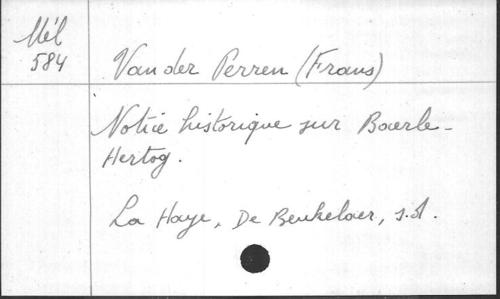 Mél
584
Van der Perren (Frans)
Notice historique sur Baerle-
Hertog.
La Haye, De Beukelaer, s.d.